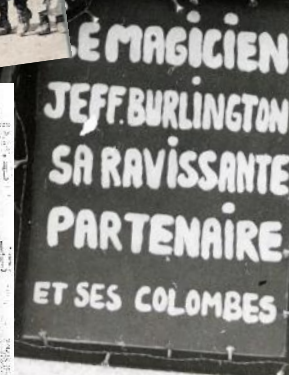 LE MAGICIEN
JEFF.BURLINGTON
SA RAVISSANTE
PARTENAIRE
ET SES COLOMBES.